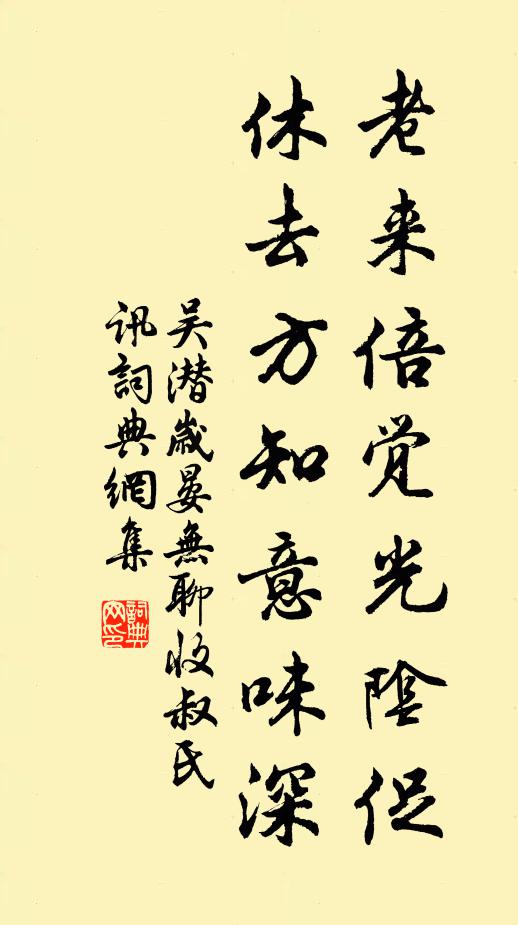 老来倍觉光阴促
休去方知意味深
吴潜歲晏無聊收叔氏
讯詞典網集
詞典网印